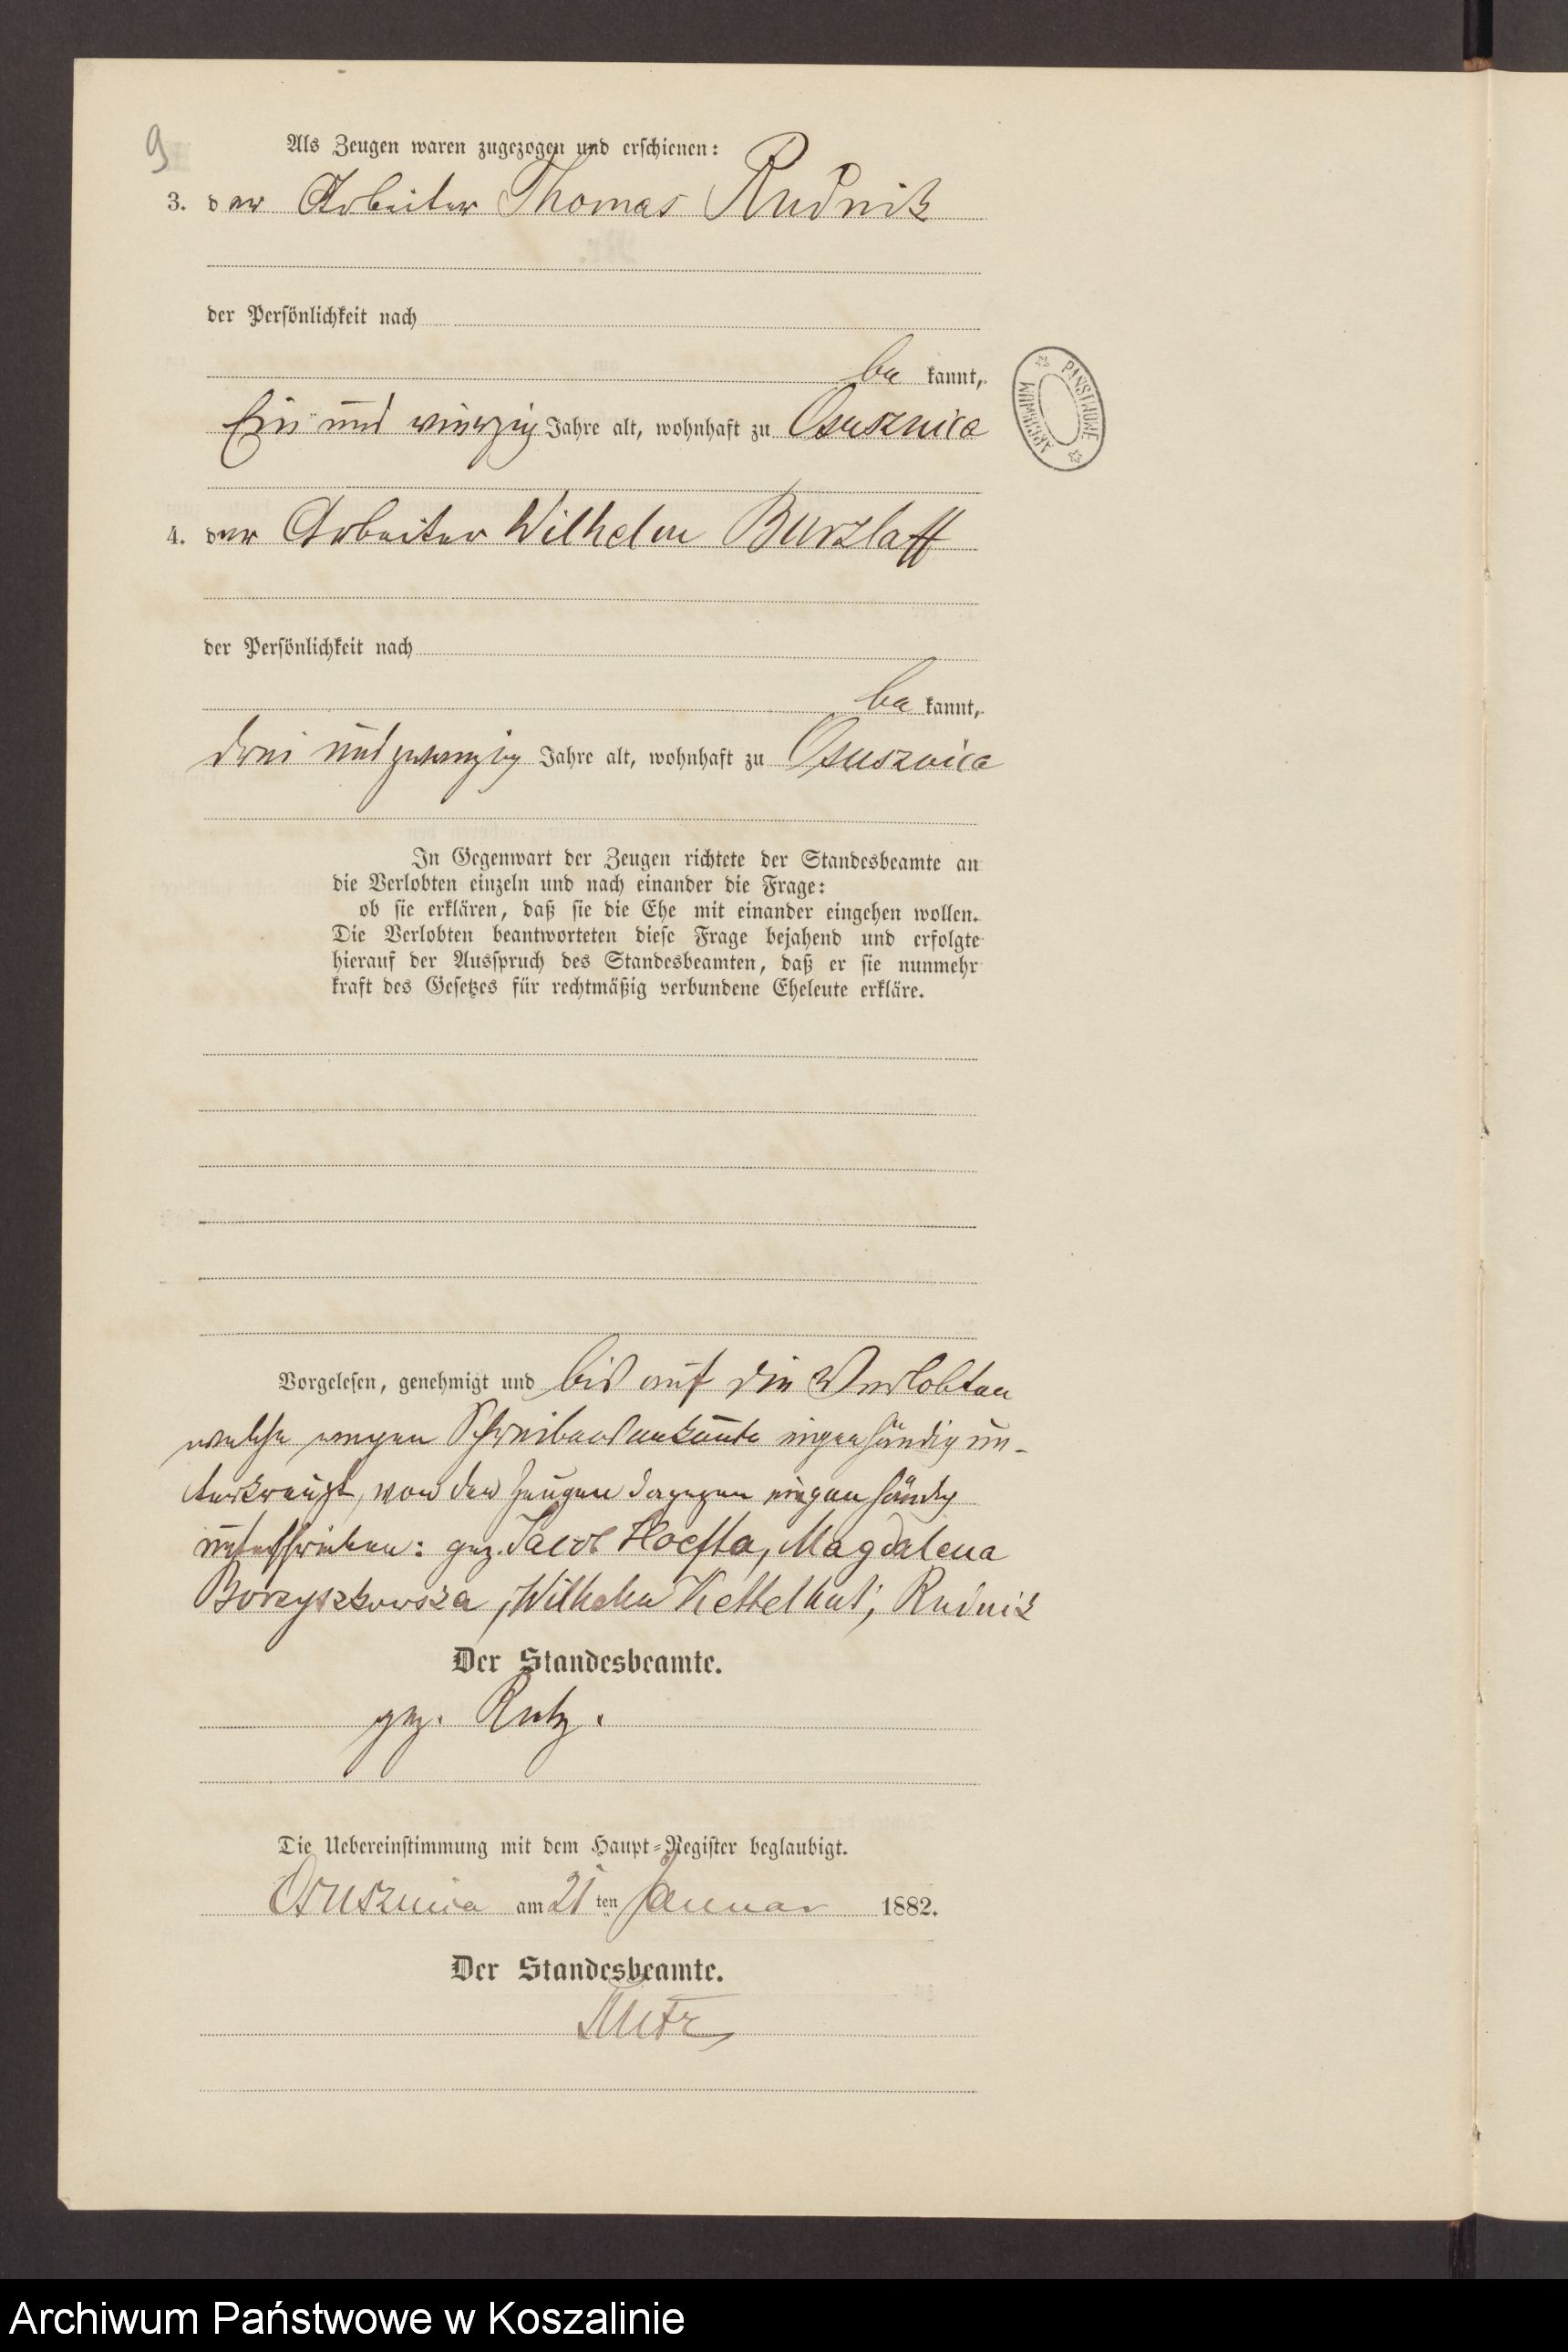 9
Als Zeugen waren zugezogen und erschienen:
3. der Arbeiter Thomas Rudnik
der Persönlichkeit nach
be kannt,
Ein und vierzig Jahre alt, wohnhaft zu Osusznica
4. der Arbeiter Wilhelm Burzlaff
der Persönlichkeit nach
be kannt,
drei und zwanzig Jahre alt, wohnhaft zu Osusznica
In Gegenwart der Zeugen richtete der Standesbeamte an
die Verlobten einzeln und nach einander die Frage:
ob sie erklären, daß sie die Ehe mit einander eingehen wollen.
Die Verlobten beantworteten diese Frage bejahend und erfolgte
hierauf der Ausspruch des Standesbeamten, daß er sie nunmehr
kraft des Gesetzes für rechtmäßig verbundene Eheleute erkläre.
Vorgelesen, genehmigt und bis auf die Verlobten
welche wegen Schreibensunkunde eigenhändig un-
terkreuzt, von den Zeugen dagegen eigenhändig
unterschrieben: gez. Jacob Hoefta, Magdalena
Borzyszkowska, Wilhelm Kettelhut, Rudnik
Der Standesbeamte.
gez. Rutz.
Die Uebereinstimmung mit dem Haupt-Register beglaubigt.
Osusznica am 21 ten Januar 1882.
Der Standesbeamte.
Rutz
ARCHIWUM PAŃSTWOWE
Archiwum Państwowe w Koszalinie